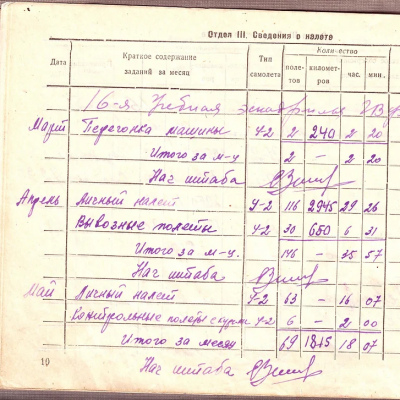 Отдел III. Сведения о налете
Дата Краткое содержание заданий за месяц Тип самолета Количество
полетов километров час. мин.
16-я Учебная эскадрилья
Март Перегонка машины У-2 2 240 2 20
Итого за м-ц 2 — 2 20
Нач штаба
Апрель Личный налет У-2 116 2945 29 26
Вывозные полеты У-2 30 650 6 31
Итого за м-ц. 146 — 35 57
Нач штаба
Май Личный налет У-2 63 — 16 07
Контрольные полеты с курс. У-2 6 — 2 00
Итого за месяц 69 1815 18 07
10 Нач штаба